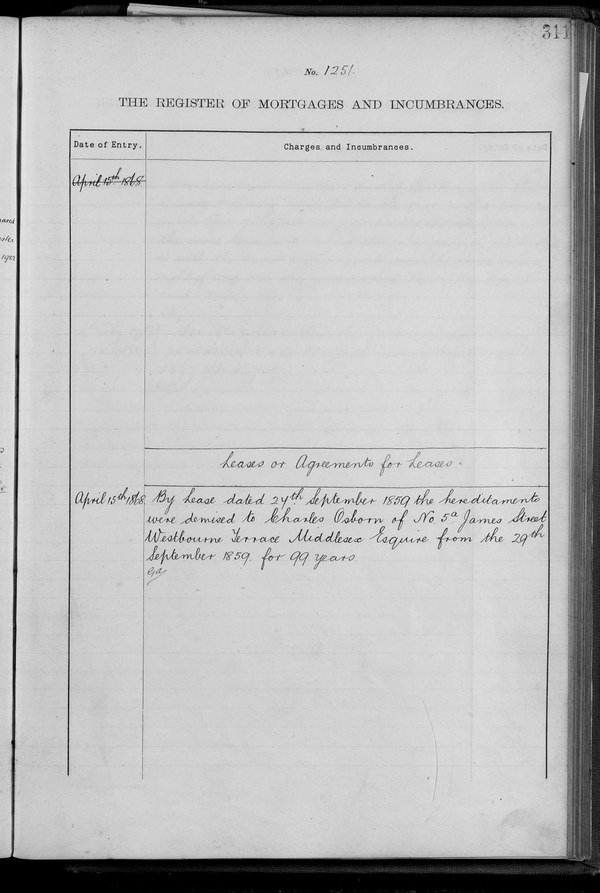 311
No. 1251.
THE REGISTER OF MORTGAGES AND INCUMBRANCES.
Date of Entry.
Charges and Incumbrances.
April 15th 1868
Leases or Agreements for Leases.
April 15th 1868. By Lease dated 24th September 1859 the hereditaments
were demised to Charles Osborn of No. 5a James Street
Westbourne Terrace Middlesex Esquire from the 29th
September 1859. for 99 years.
1901